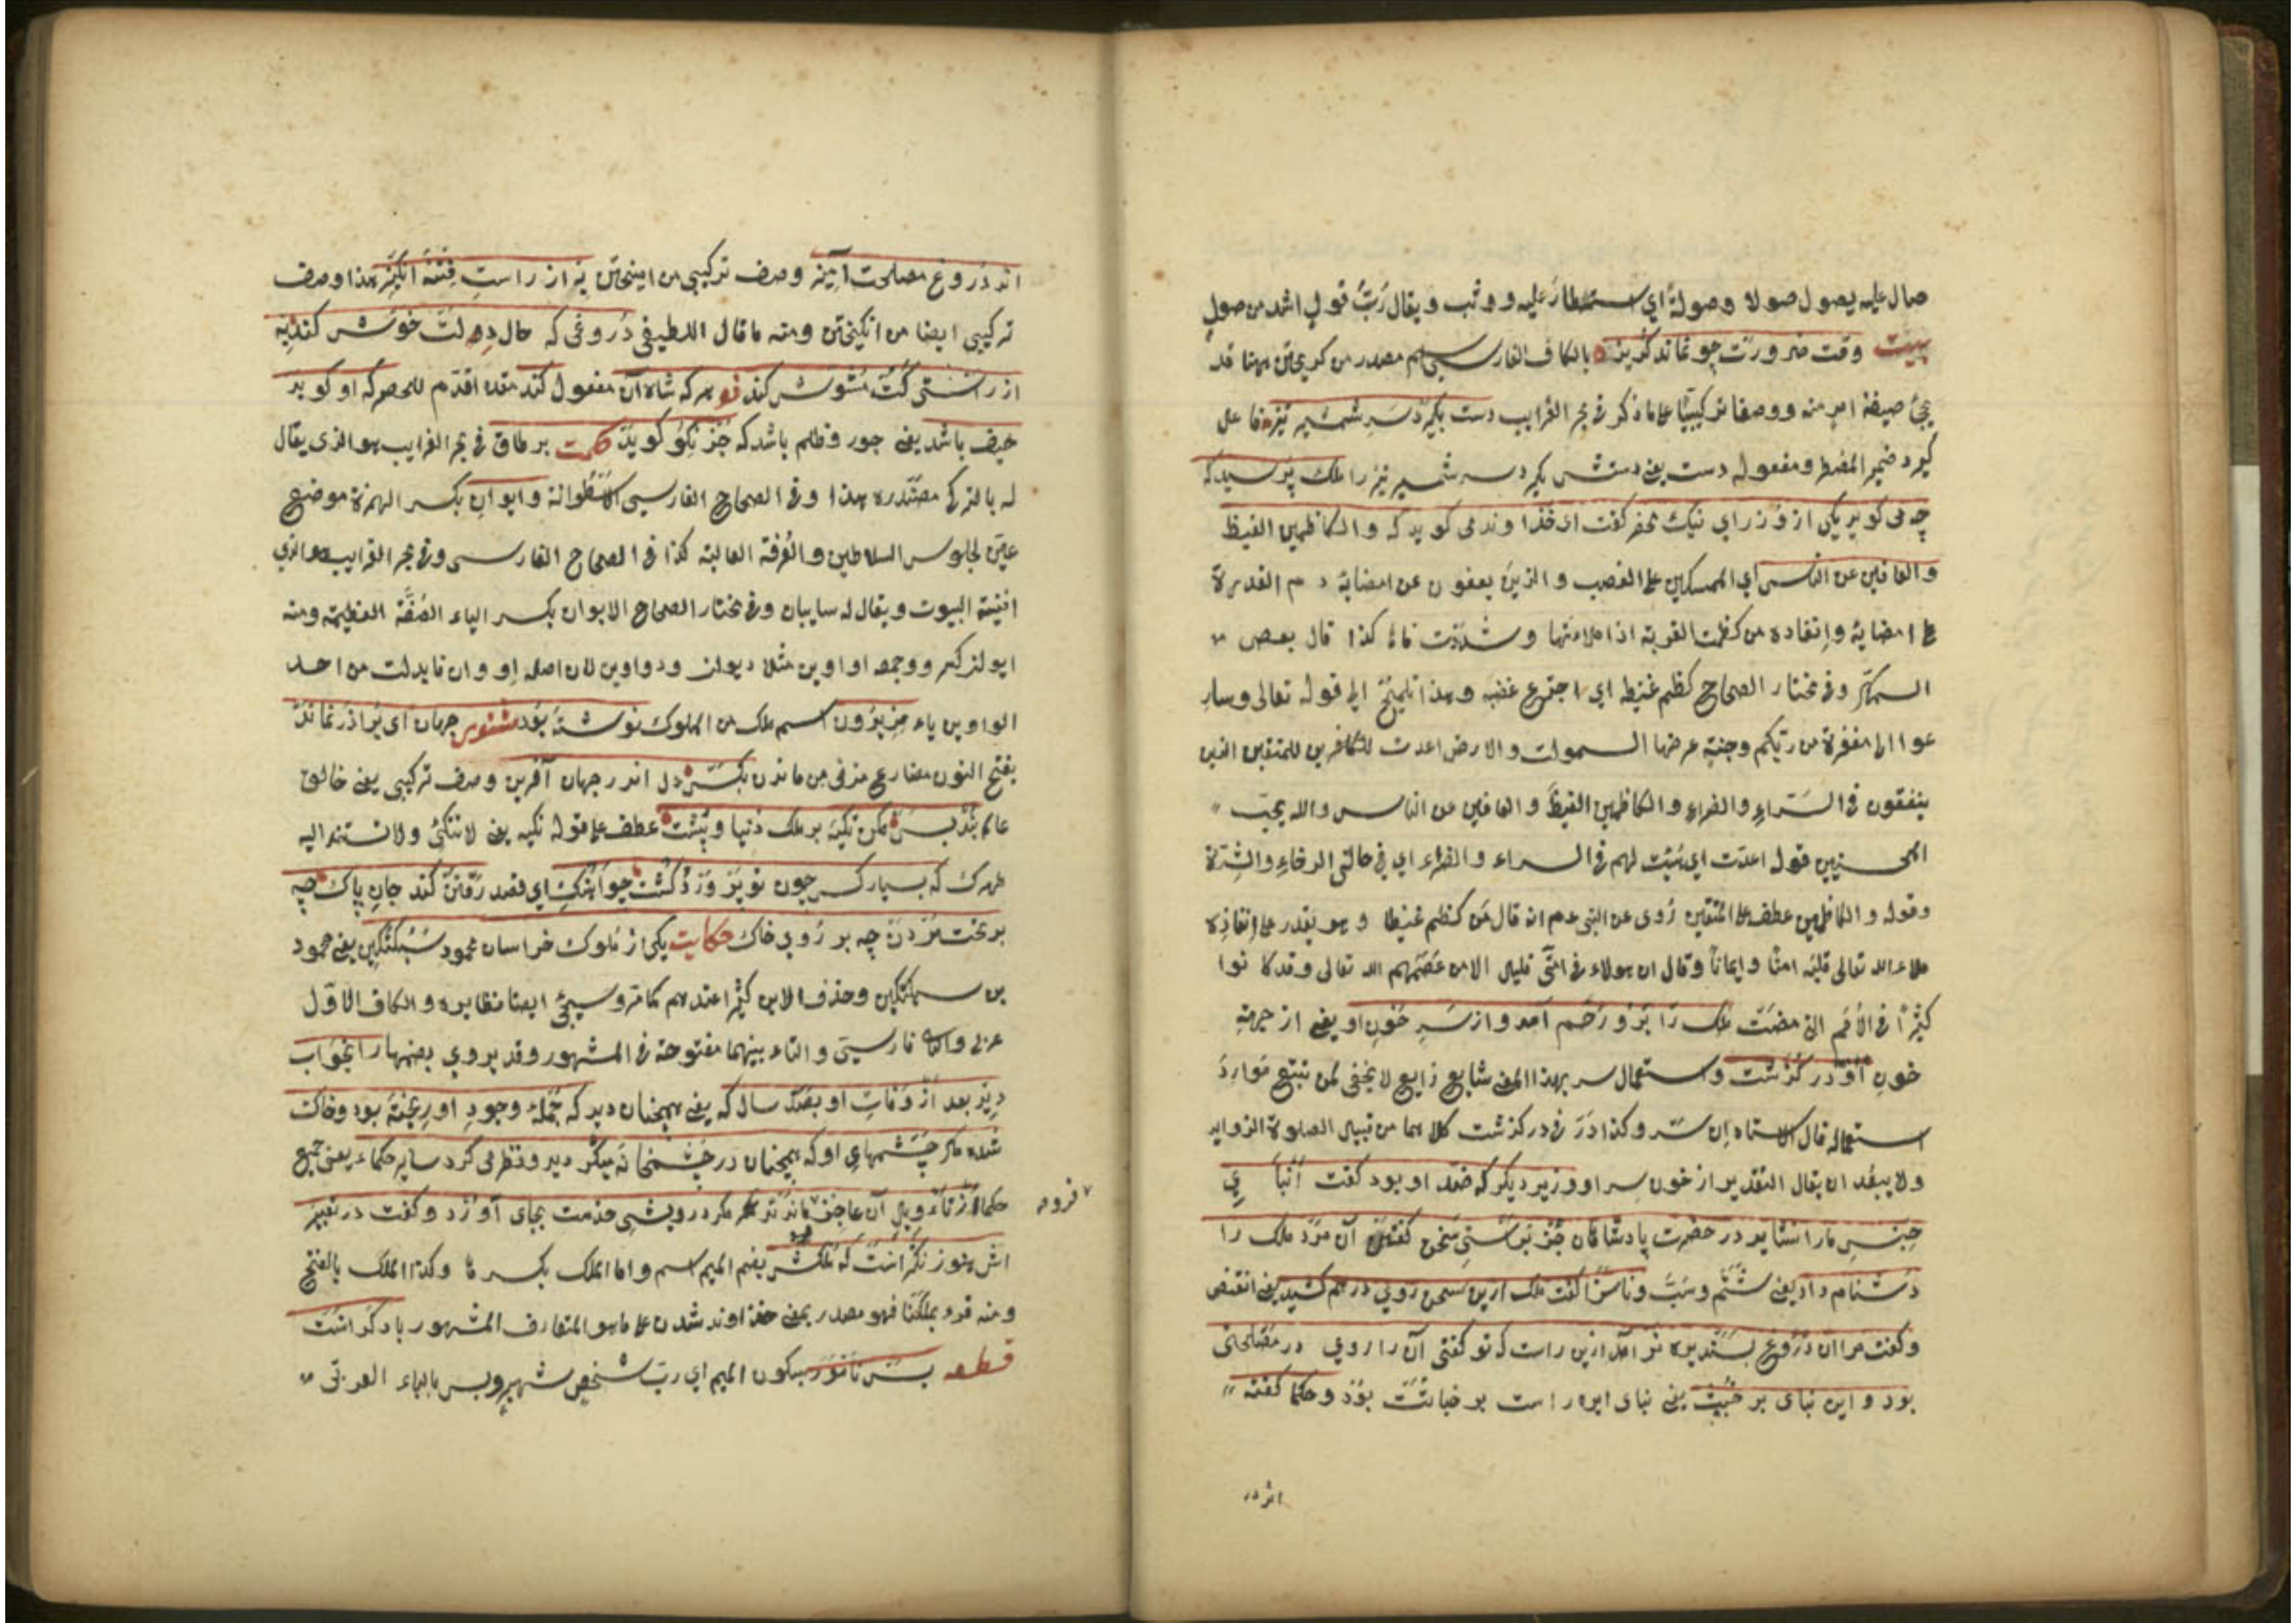 صال عليه يصول صولا وصولةً اي استطار عليه ووثب ويقال رُبَّ قولٍ اشد من صولٍ
بيت وقت ضرورت چو نماند كريز بالكاف الفارسي اسم مصدر من كريختن مهنا قد
يجئ صيغة امر منه ووصفا تركيبيًّا على ما ذكر في بحر الغرايب دست بكيرد سر شمشير تيز فاعل
كيرد ضمير المضطر ومفعوله دست يعني دستش بكيرد سر شمشير تيز را ملك پرسيد كه
چه می كويد يكی از وزرای نيك محضر كفت ای خداوند می كويد كه والكاظمين الغيظ
والعافين عن الناس اي الممسكين على الغضب والذين يعفون عن امضايه مع القدرة
على امضايه وانفاذه من كظمت القربة اذا ملأتها وشددت فاها كذا قال بعض
وفي مختار الصحاح كظم غيظه اي اجترع غضبه وهذا تلميح الى قوله تعالى وسار
عوا الى مغفرة من ربكم وجنة عرضها السموات والارض اعدت للمتقين الذين
ينفقون في السَّراءِ والضراءِ والكاظمين الغيظَ والعافين عن الناس والله يحبّ
المحسنين قوله اعدّت اي هُيئت لهم في السراء والضراء اي في حالتي الرخاءِ والشِدّة
وقوله والكاظمين عطف على المتقين رُوى عن النبي عم انه قال مَن كظم غيظا وهو يقدر على اِنفاذه
ملاء الله تعالى قلبَه امنًا وايمانًا وقال ان هولاء في امّتي قليل الا من عَصَمَهم الله تعالى وقد كانوا
كثيرًا في الأمَم التي مضَت ملك را بَرو رَحم آمد واز سَرِ خُونِ او يعني از جرمهٔ
خونِ او در كذشت واستعمال سر بهذا المعنى شايع ذايع لا يخفى لمن تتبع موارد
استعماله قال الاستاد اِن سَر وكذا دَرَ في در كذشت كلاهما من قبيل الصلوة الزوايد
ولا يبعُد ان يقال التقدير از خون سر او وزير ديكر كه ضدّ او بود كفت ابنا ي
جنسِ ما را نشايد در حضرت پادشاهان جُز براستی سُخن كفتن آن مرد ملك را
دشنام داد يعني شَتَم وسَبّ وناسزا كفت ملك ازين سخن روی درهم كشيد يعني انقبض
وكفت مرا آن دروغ پسنديده تر آمد ازين راست كه تو كفتی آن را روی در مصلحتی
بود واين بنای بر خُبث يعني بنای اين راست بر خباثت بود وحكما كفته
اند در
اند دروغ مصلحت آميز وصف تركيبي من اميختن به از راستِ فِتنه انكيز هذا وصف
تركيبي ايضا من انكيختن ومنه ما قال اللطيفي دُروغی كه حال دِلت خوش كند بِه
از راستی كت مُشوش كند هر كه شاه آن مفعول كند مقدم قدّم للحصر كه او كويد
حيف باشد يعني جور وظلم باشد كه جُز نِكُو كويد حكمت بر طاق في بحر الغرايب هو الذي يقال
له بالتركي هذا وفي الصحاح الفارسي الاسطوانة وايوان بكسر الهمزة موضع
عاين لجلوس السلاطين والغُرفة العالية كذا في الصحاح الفارسي وفي بحر الغرايب هو الذي
افنية البيوت ويقال له سايبان وفي مختار الصحاح الايوان بكسر الياء الصُفّة العظيمة ومنه
ايوان كسر وجمعه اواوين مثل ديوان ودواوين لان اصله اِووان فابدلت من احد
الواوين ياء فِريدُون اسم ملك من الملوك نوشته بُود مثنوی جهان ای برادر نماند
بفتح النون مضارع منفي من ماندن بكس دل اندر جهان آفرين وصف تركيبي يعني خالق
عالم بند بس مكن تكيه بر ملك دنيا وپُشت عطف على قوله تكيه يعني لا تتكئ ولا تستند اليه
كه بسيار كس چون تو پَرورد وكُشت چو آهنك اي قصد رَفتن كند جانِ پاك چه
بر تخت مُردن چه بر رُوی خاك حكايت يكی از ملوك خراسان محمود سَبُكتكين يعني محمود
بن سبكتكين وحذف الابن كثير عندهم كما مرّ وسيجئ ايضا نظايره والكاف الاوّل
عربي والثاني فارسيّ والتاء بينهما مفتوحة في المشهور وقد يروي بضمها را بخواب
ديد بعد از وَفاتِ او بصد سال كه يعني همچنان ديد كه جُملهٔ وجودِ او ريخته بود وخاك
شده مكر چَشمهایِ او كه همچنان در چشمخانه ميكرديد ونظر می كرد ساير حكماء يعني جميع
حكما از تأويلِ آن عاجز ماندند مكر درويشی خدمت بجای آورد وكفت در تعبير
فروم
اش هنوز نكرانست كه مُلكش بضم الميم اسم واما الملك بكسرها وكذا الملك بالفتح
ومنه قوله بملكنا فهو مصدر بمعنى خداوند شدن على ما هو المتعارف المشهور با دكرانست
قطعه بس نامور بسكون الميم اي ربّ شخصٍ شهير وبس بالباء العربيّ